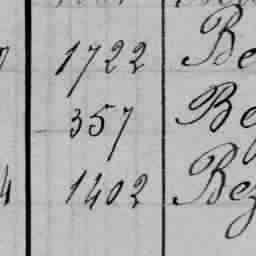 1722 Be
357 Be
4 1402 Bez